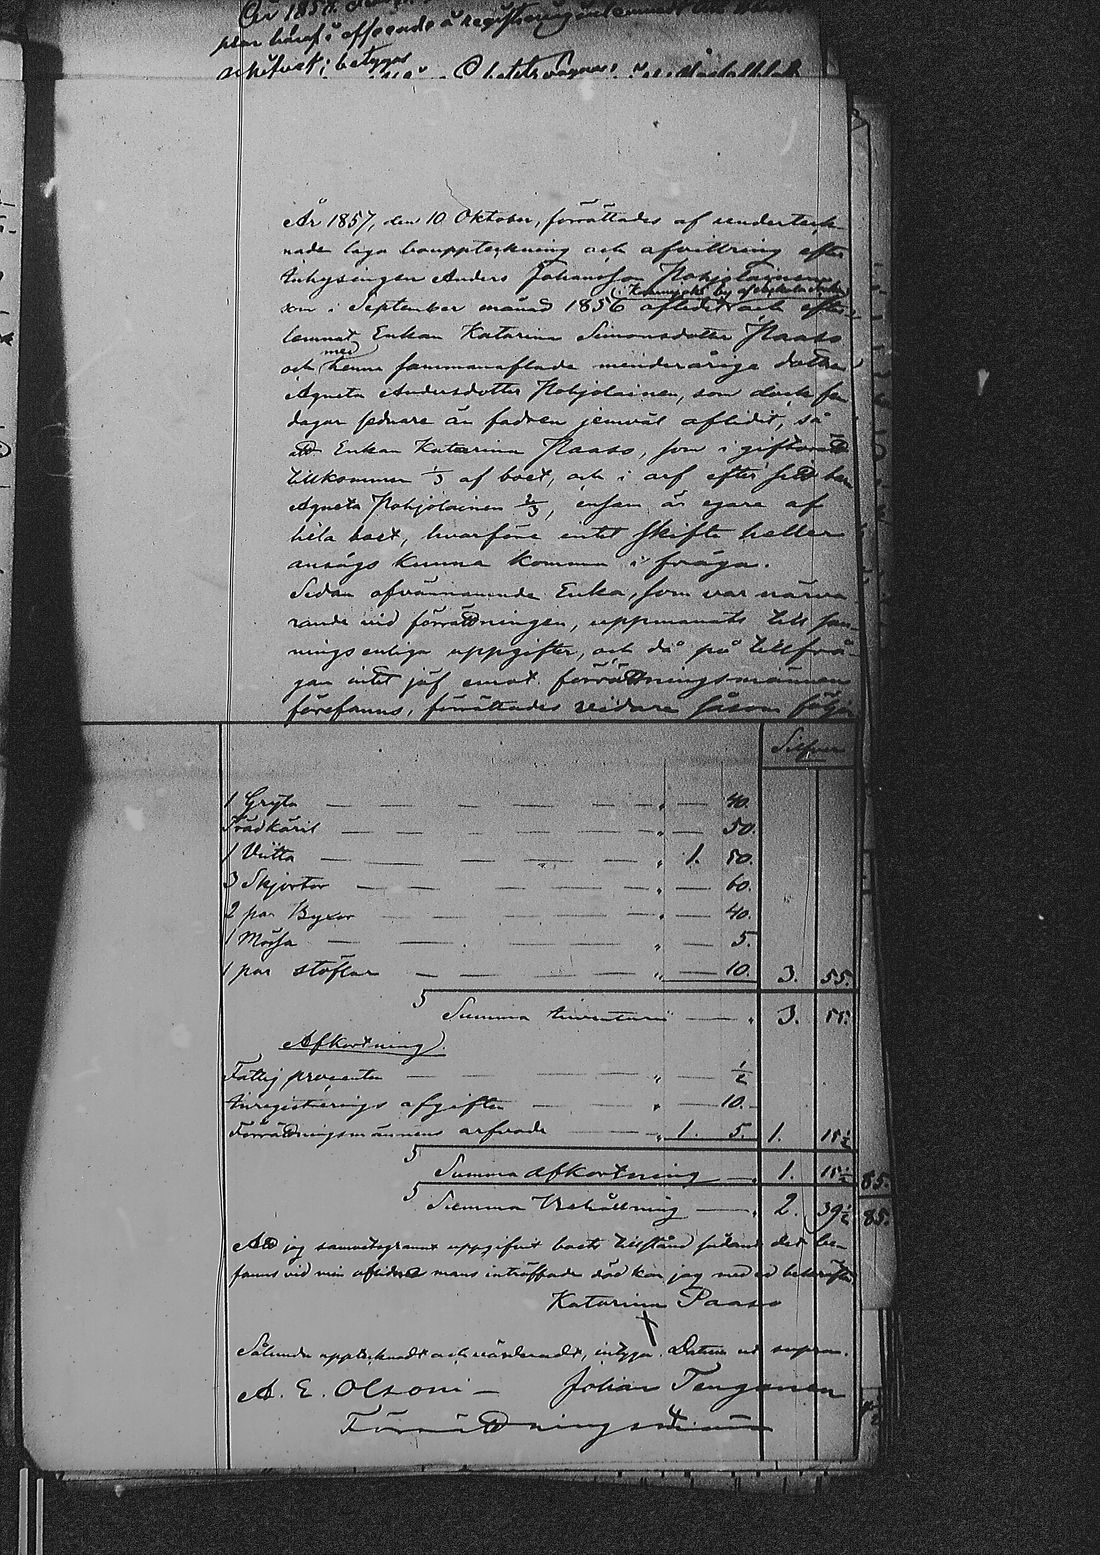 År 1857, den 10 Oktober, förrättades af underteck-
nade laga bouppteckning och afvittring efter
Inhysingen Anders Johansson Pohjolainen
by
som i September månad 1856 aflidit och efter
lemnat Enkan Katarina Simonsdotter Paaso
med
och henne sammanaflade minderåriga dotter
Agneta Andersdotter Pohjolainen, som dock få
dagar sednare än fadren jemväl aflidit, så
att Enkan Katarina Paaso, som i giftorätt
tillkommer 1/3 af boet, och i arf efter sitt barn
Agneta Pohjolainen 2/3, ensam är egare af
hela boet, hvarföre intet skifte heller
ansågs kunna komma i fråga.
Sedan ofvannämnde Enka, som var närva
rande vid förrättningen, uppmanats till san-
ningsenliga uppgifter, och då på tillfrå-
gan intet jäf emot förrättningsmännen
förefanns, förrättades vidare såsom följer
Silfver
1 Gryta — — — — — " — 40.
Trädkäril — — — — — " — 50.
1 — — — — — " 1. 50.
3 Skjortor — — — — " — 60.
2 par Byxor — — — — " — 40.
1 Mössa — — — — " — 5.
1 par stöflar — — — — " — 10. 3. 55.
Summa Inventarii — " 3. 55.
Afkortning
Fattig procenten — — — " — 1/2
Inregistrerings afgiften — — " — 10.
Förrättningsmännens arfvode — " 1. 5. 1. 15 1/2
Summa Afkortning — " 1. 15 1/2 85.
Summa Behållning — " 2. 39 1/2 85.
Att jag samvetsgrannt uppgifvit boets tillstånd sådant det be-
fanns vid min aflidne mans inträffade död kan jag med ed bekräfta
Katarina Paaso
Sålunda upptecknadt och värderadt, intyga. Datum ut supra.
A. E. Olsoni — Johan Tenganen
Förrättningsmän